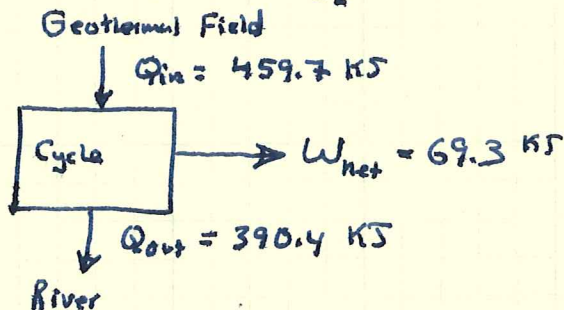 Geothermal Field
Qin = 459.7 KJ
Cycle
Wnet = 69.3 KJ
Qout = 390.4 KJ
River